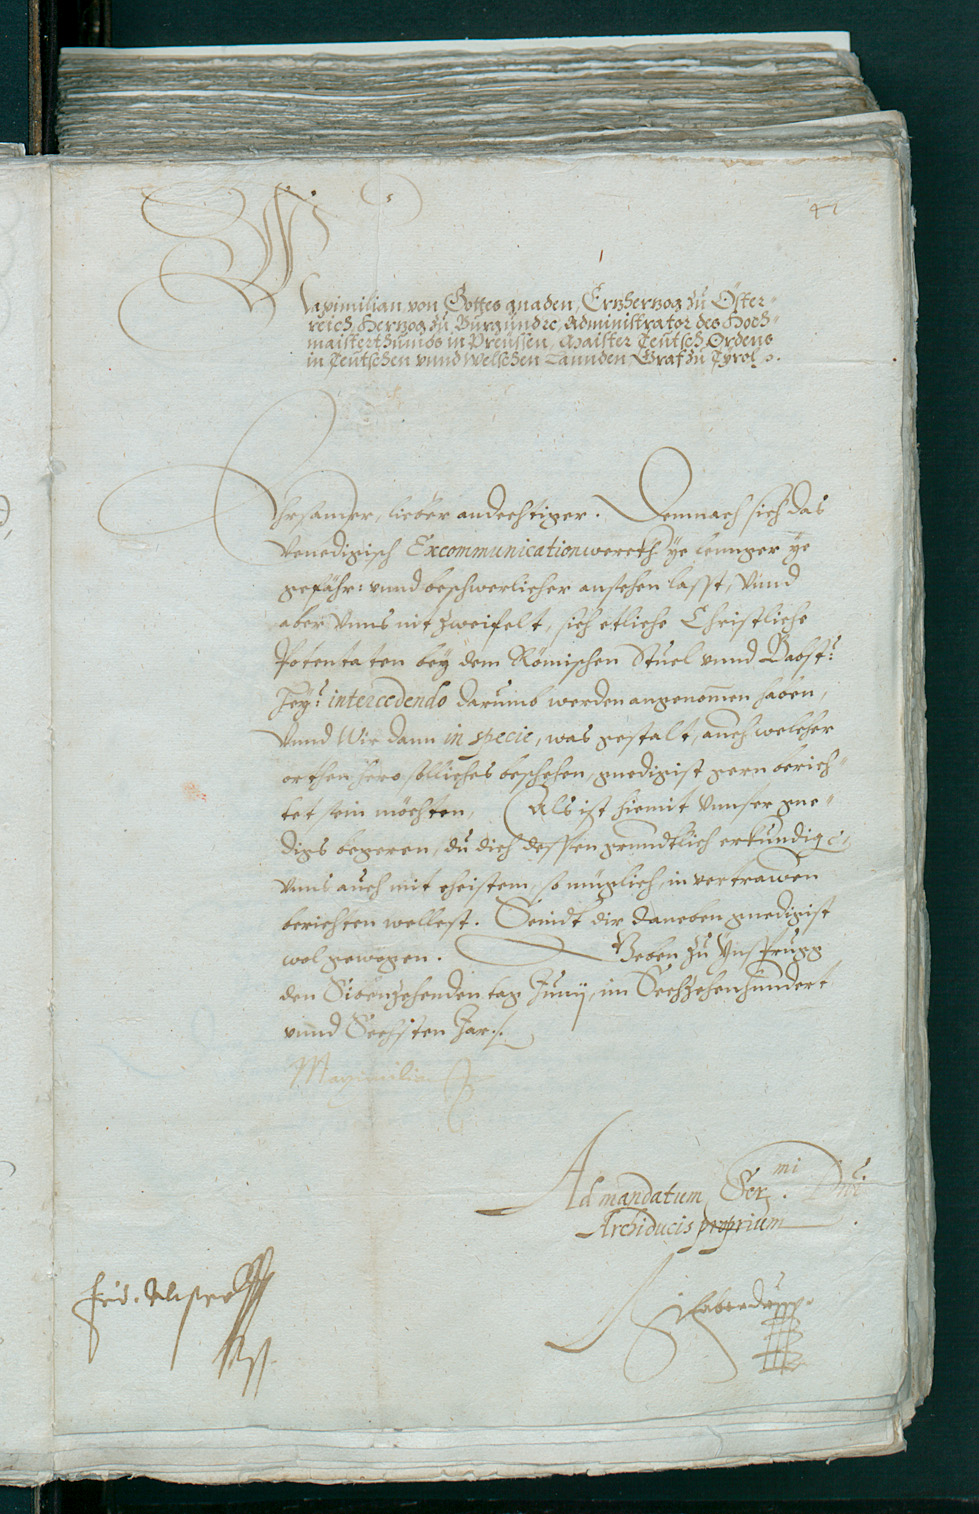 41
Maximilian von Gottes gnaden, Ertzhertzog zu Öster-
reich, Hertzog zu Burgundt &c, Administrator des Hoch-
maisterthumbs in Preussen, Maister Teutsch Ordens
in Teutschen vnnd Welschen Lannden, Graf zu Tyrol &c.
Ehrsamer, lieber andechtiger. Demnach sich das
Venedigisch Excommunicationwerckh ye lennger ye
gefähr: vnnd beschwerlicher ansehen lasst, vnnd
aber Vnns nit zweifelt, sich etliche Christliche
Potentaten bey dem Römischen Stuel vnnd Babst:
Hey: intercedendo darumb werden angenomen haben,
Vnnd Wir dann in specie, was gestalt, auch welcher
orthen hero sölliches beschehen, gnedigist gern berich-
tet sein möchten, Als ist hiemit Vnnser gne-
digs begeren, du dich dessen grundtlich erkundigen,
Vnns auch mit eheistem, so müglich, in vertrawen
berichten wellest. Seindt dir daneben gnedigist
wol gewogen. Geben zu Ynsprugg
den Sibenzehenden tag Junij, im Sechzehenhundert
vnnd Sechsten Jar.
Maximilian
Ad mandatum Ser.mi Dni
Archiducis proprium